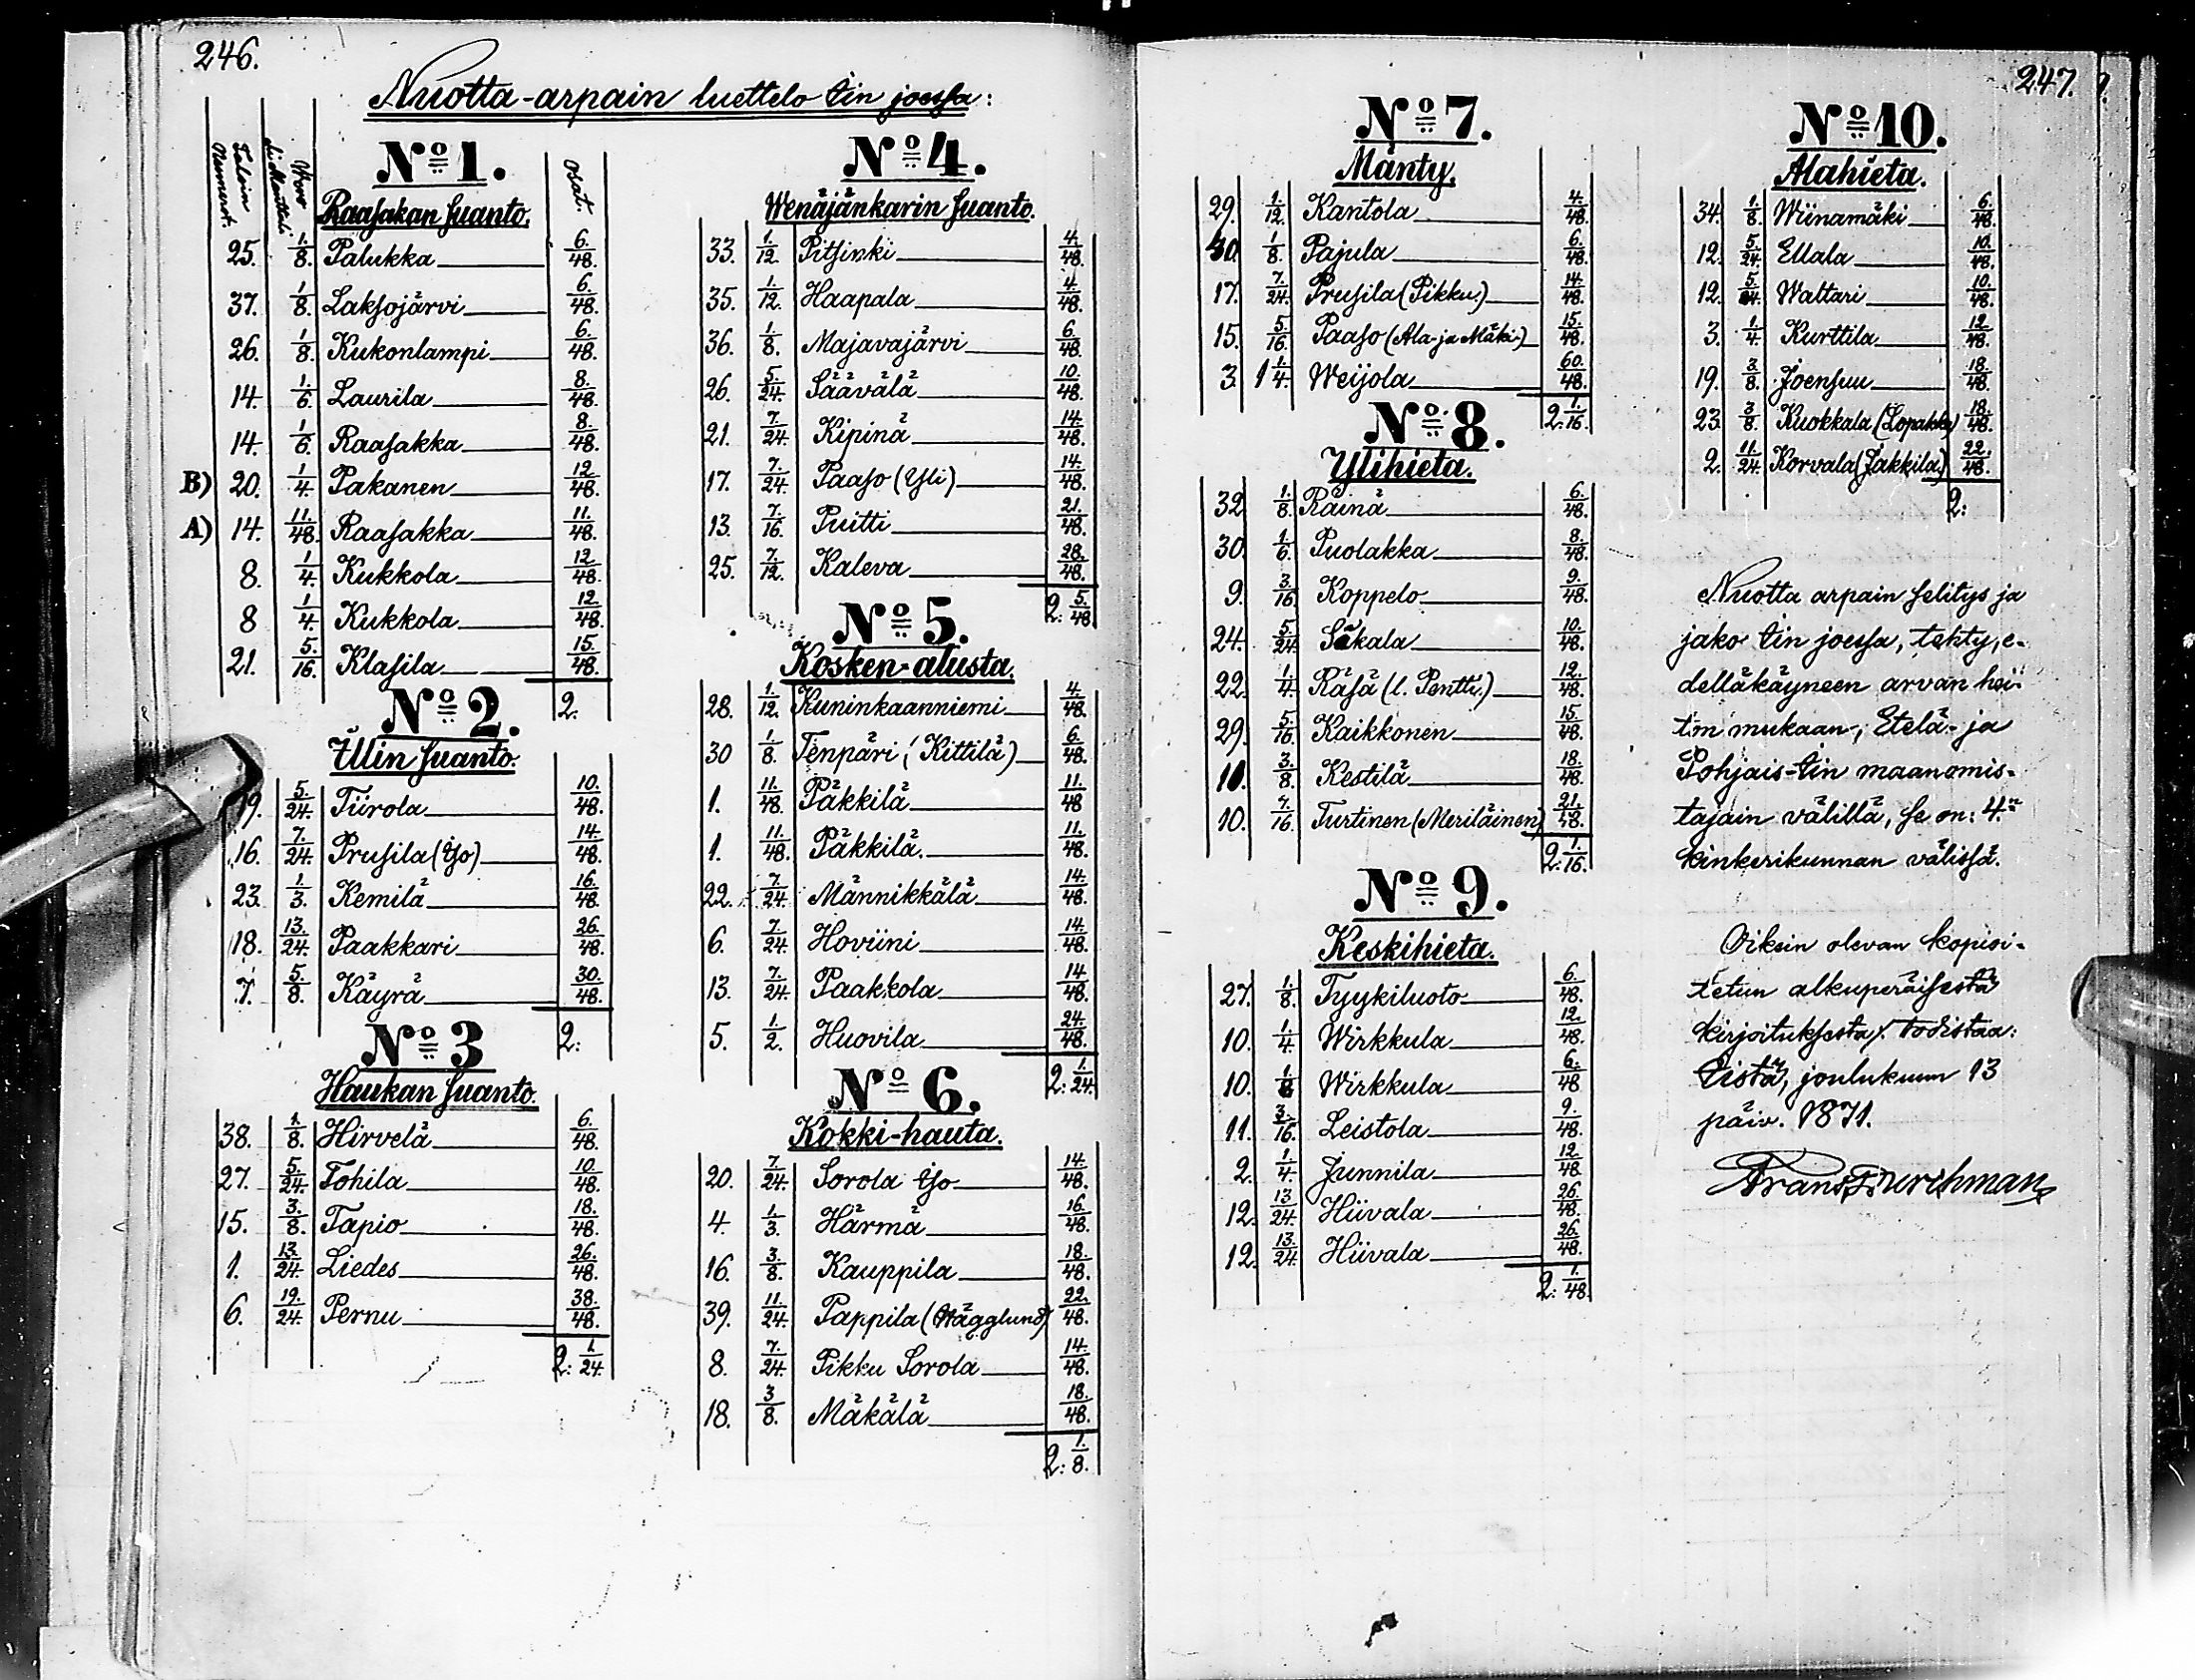 246.
Nuotta-arpain luettelo Iin joessa:
Taloin Numerot.
Osat.
No 1.
Raasakan suanto.
25. 1/8. Palukka 6/48.
37. 1/8. Laksojärvi 6/48.
26. 1/8. Kukonlampi 6/48.
14. 1/6. Laurila 8/48.
14. 1/6. Raasakka 8/48.
B) 20. 1/4. Pakanen 12/48.
A) 14. 11/48. Raasakka 11/48.
8. 1/4. Kukkola 12/48.
8 1/4. Kukkola 12/48.
21. 5/16. Klasila 15/48.
2.
No 2.
Illin suanto.
19. 5/24. Tiirola 10/48.
16. 7/24. Prusila (Iso) 14/48.
23. 1/3. Kemilä 16/48.
18. 13/24. Paakkari 26/48.
7. 5/8. Käyrä 30/48.
2:
No 3
Haukan suanto.
38. 1/8. Hirvelä 6/48.
27. 5/24. Tohila 10/48.
15. 3/8. Tapio 18/48.
1. 13/24. Liedes 26/48.
6. 19/24. Pernu 38/48.
2: 1/24.
No 4.
Wenäjänkarin suanto.
33. 1/12. Pitsinki 4/48.
35. 1/12. Haapala 4/48.
36. 1/8. Majavajärvi 6/48.
26. 5/24. Säävälä 10/48.
21. 7/24. Kipinä 14/48.
17. 7/24. Paaso (Yli) 14/48.
13. 7/16. Puitti 21/48.
25. 7/12. Kaleva 28/48.
2: 5/48
No 5.
Kosken-alusta.
28. 1/12. Kuninkaanniemi 4/48.
30 1/8. Tenpäri (Kittilä) 6/48.
1. 11/48. Päkkilä 11/48
1. 11/48. Päkkilä. 11/48.
22. 7/24. Männikkälä 14/48.
6. 7/24. Hoviini 14/48.
13. 7/24. Paakkola 14/48.
5. 1/2. Huovila 24/48.
2: 1/24.
No 6.
Kokki-hauta.
20. 7/24. Sorola Iso 14/48.
4. 1/3. Härmä 16/48.
16. 3/8. Kauppila 18/48.
39. 11/24. Pappila (Hägglund) 22/48.
8. 7/24. Pikku Sorola 14/48.
18. 3/8. Mäkälä 18/48.
2: 1/8.
247.
No 7.
Mänty.
29. 1/12. Kantola 4/48.
30. 1/8. Pajula 6/48.
17. 7/24. Prusila (Pikku.) 14/48.
15. 5/16. Paaso (Ala-ja Mäki-) 15/48.
3. 1 1/4. Weijola 60/48.
2: 1/16.
No 8.
Ylihieta.
32 1/8. Räinä 6/48.
30. 1/6. Puolakka 8/48.
9. 3/16. Koppelo 9/48.
24. 5/24. Säkala 10/48.
22. 1/4. Räsä (l. Pentti.) 12/48.
29. 5/16. Kaikkonen 15/48.
3/8. Kestilä 18/48.
10. 7/16. Turtinen (Meriläinen) 21/48.
2: 1/16.
No 9.
Keskihieta.
27. 1/8. Tyykiluoto 6/48.
10. 1/4. Wirkkula 12/48.
10. 1/8 Wirkkula 6/48
11. 3/16. Leistola 9/48.
2. 1/4. Junnila 12/48
12. 13/24. Hiivala 26/48.
12. 13/24. Hiivala 26/48.
2: 1/48.
No 10.
Alahieta.
34. 1/8. Wiinamäki 6/48.
12. 5/24. Ellala 10/48.
12. 5/24. Waltari 10/48.
3. 1/4. Kurttila 12/48.
19. 3/8. Joensuu 18/48.
23. 3/8. Kuokkala (Lopakka) 18/48.
2. 11/24. Korvala (Jakkila) 22/48.
2:
Nuotta arpain selitys ja
jako Iin joessa, tehty, e-
delläkäyneen arvan hei-
ton mukaan, Etelä- ja
Pohjais-Iin maanomis-
tajain välillä, se on: 4:n
kinkerikunnan välissä.
Oiksin olevan kopioi-
tetun alkuperäisestä
kirjoituksesta, todistaa:
Iistä, joulukuun 13
päiv. 1871.